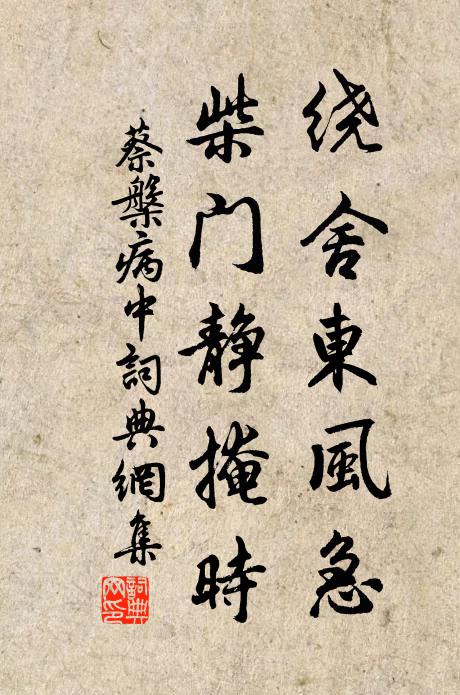 绕舍東風急
柴门静掩時
蔡槃病中詞典網集
詞典
网印